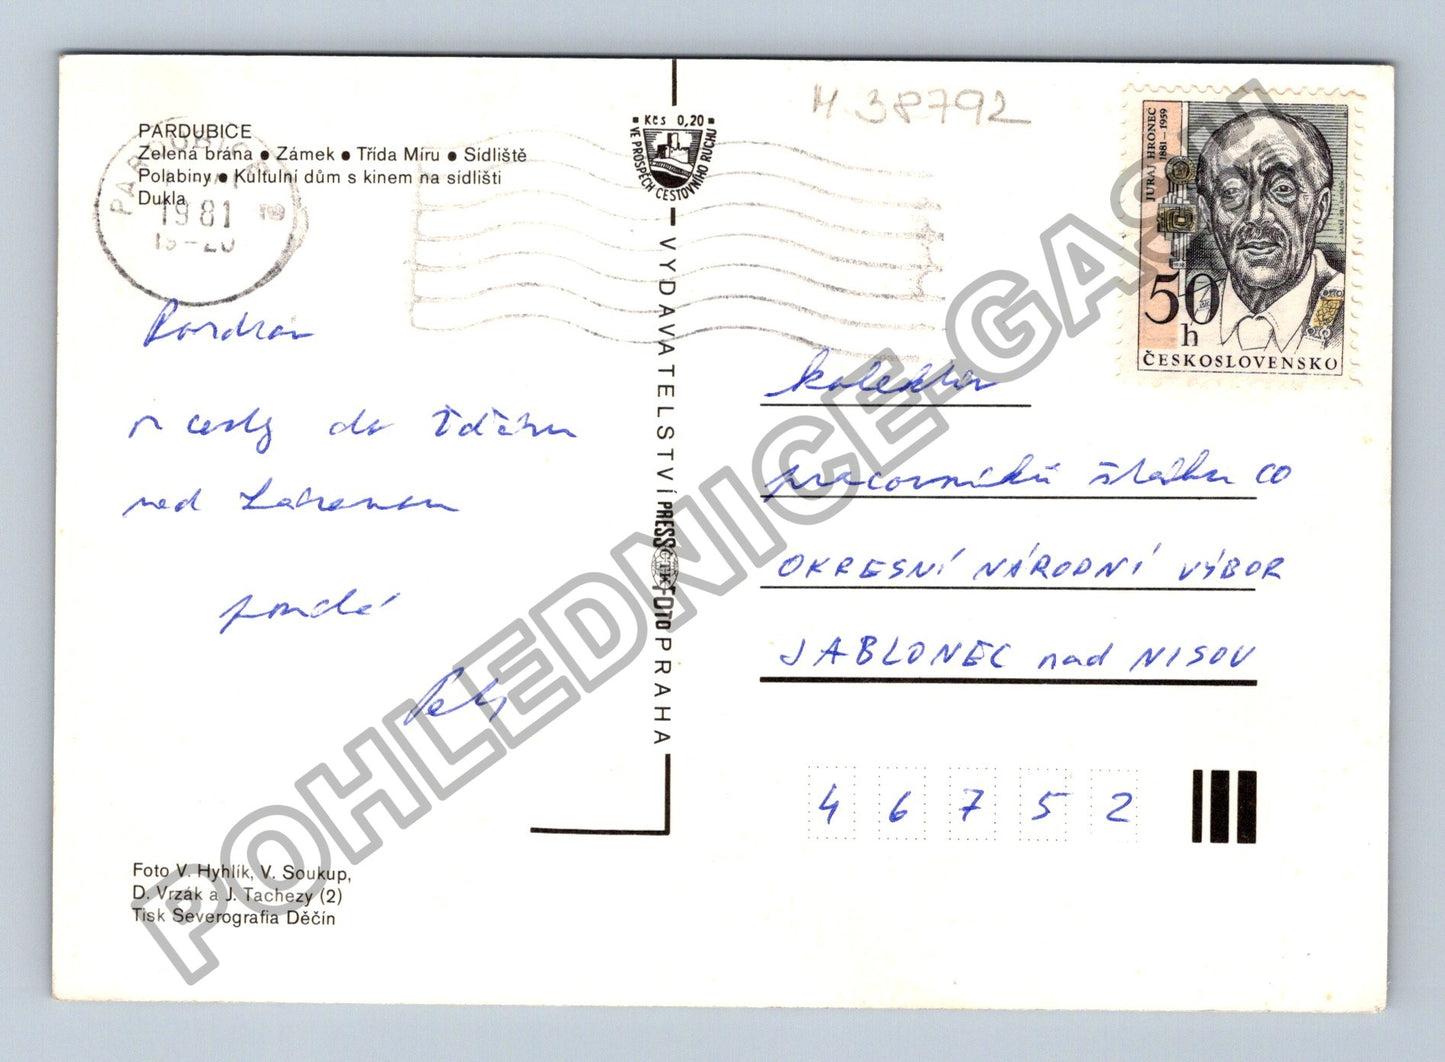 M 38792
PARDUBICE
Zelená brána ● Zámek ● Třída Míru ● Sídliště
Polabiny ● Kulturní dům s kinem na sídlišti
Dukla
PARDUBICE
1981
Kčs 0,20
VE PROSPĚCH CESTOVNÍHO RUCHU
JURAJ HRONEC
1881–1959
50 h
ČESKOSLOVENSKO
Pozdrav
z cesty do Žďáru
nad Sázavou
VYDAVATELSTVÍ PRESSFOTO PRAHA
ČTK
kolektiv
pracovníků štábu CO
OKRESNÍ NÁRODNÍ VÝBOR
JABLONEC nad NISOU
46752
Foto V. Hyhlík, V. Soukup,
D. Vrzák a J. Tachezy (2)
Tisk Severografia Děčín
POHLEDNICE-GASH